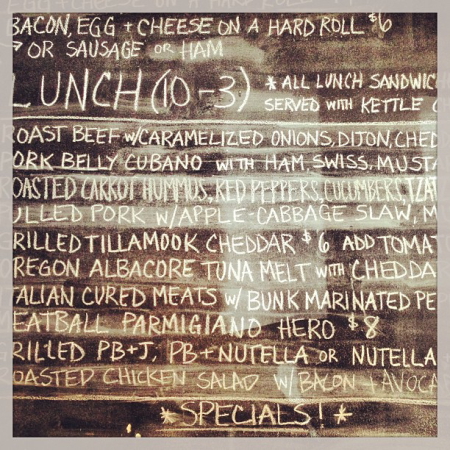 BACON, EGG + CHEESE ON A HARD ROLL $6
OR SAUSAGE OR HAM
LUNCH (10-3) *ALL LUNCH SANDWIC
SERVED WITH KETTLE C
OAST BEEF W/CARAMELIZED ONIONS, DIJON, CHED
ORK BELLY CUBANO WITH HAM, SWISS, MUSTA
OASTED CARROT HUMMUS, RED PEPPERS, CUCUMBERS, TZA
ULLED PORK W/APPLE-CABBAGE SLAW, M
RILLED TILLAMOOK CHEDDAR $6 ADD TOMAT
REGON ALBACORE TUNA MELT WITH CHEDDA
ALIAN CURED MEATS W/ BUNK MARINATED PE
EATBALL PARMIGIANO HERO $8
RILLED PB+J, PB+NUTELLA OR NUTELLA
OASTED CHICKEN SALAD W/BACON + AVOCA
*SPECIALS!*